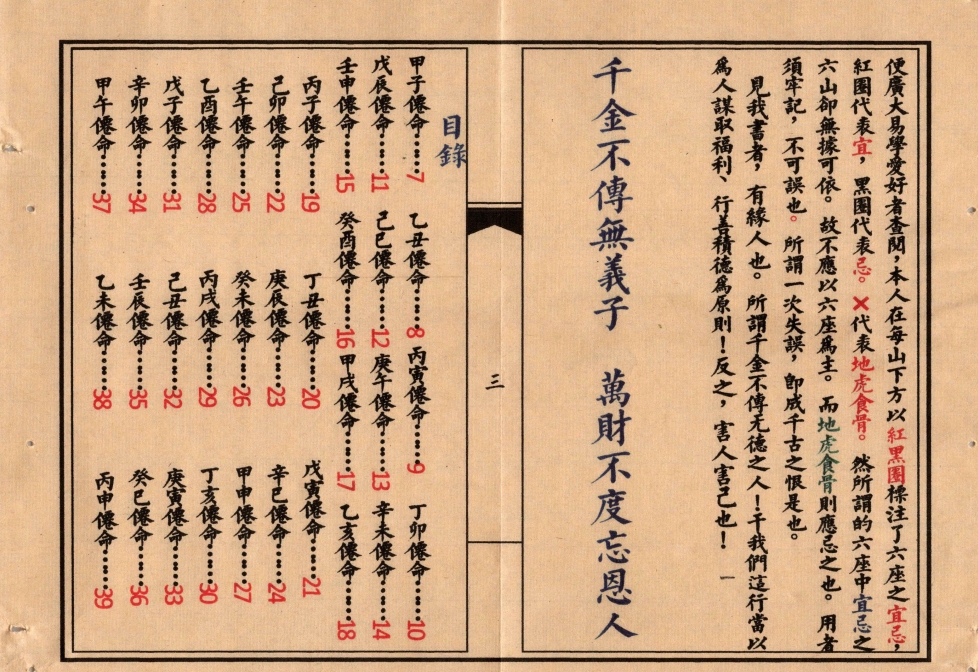 便廣大易學愛好者查閱，本人在每山下方以紅黑圈標注了六座之宜忌，
紅圈代表宜，黑圈代表忌。×代表地虎食骨。然所謂的六座中宜忌之
六山卻無據可依。故不應以六座爲主。而地虎食骨則應忌之也。用者
須牢記，不可誤也。所謂一次失誤，即成千古之恨是也。
見我書者，有緣人也。所謂千金不傳无德之人！干我們這行當以
爲人謀取福利、行善積德爲原則！反之，害人害己也！一
千金不傳無義子 萬財不度忘恩人
三
目錄
甲子僊命……7 乙丑僊命……8 丙寅僊命……9 丁卯僊命……10
戊辰僊命……11 己巳僊命……12 庚午僊命……13 辛未僊命……14
壬申僊命……15 癸酉僊命……16 甲戌僊命……17 乙亥僊命……18
丙子僊命……19 丁丑僊命……20 戊寅僊命……21
己卯僊命……22 庚辰僊命……23 辛巳僊命……24
壬午僊命……25 癸未僊命……26 甲申僊命……27
乙酉僊命……28 丙戌僊命……29 丁亥僊命……30
戊子僊命……31 己丑僊命……32 庚寅僊命……33
辛卯僊命……34 壬辰僊命……35 癸巳僊命……36
甲午僊命……37 乙未僊命……38 丙申僊命……39